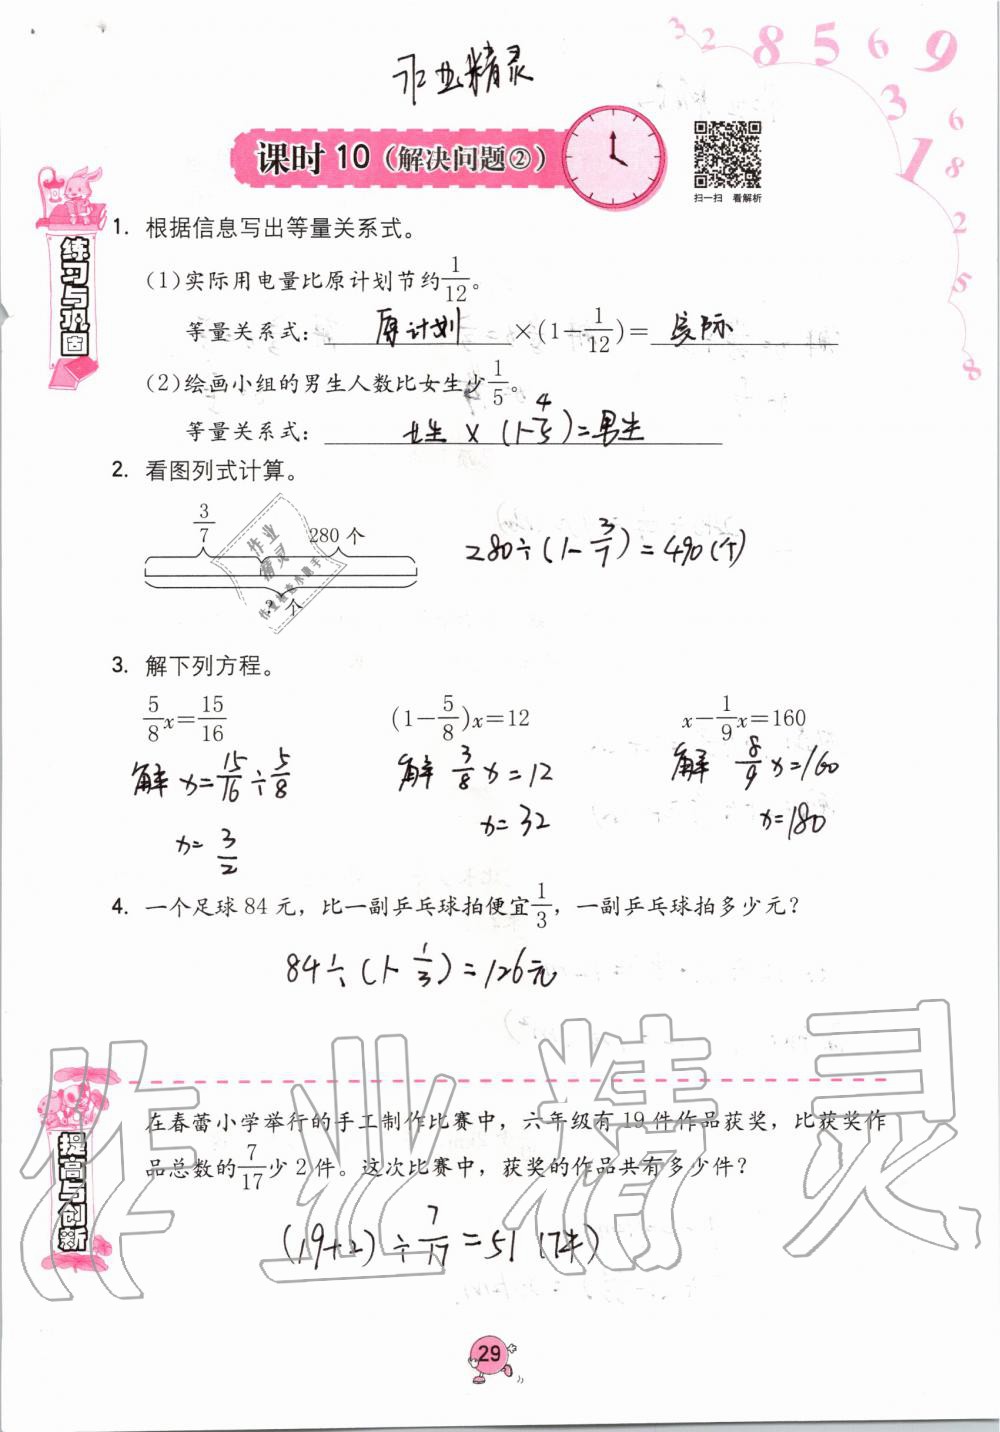 作业精灵
课时10（解决问题②）
扫一扫 看解析
练习与巩固
1. 根据信息写出等量关系式。
(1)实际用电量比原计划节约1/12。
等量关系式：原计划×(1-1/12)=实际
(2)绘画小组的男生人数比女生少1/5。
等量关系式：女生×(1-1/5)=男生
4
2. 看图列式计算。
3/7 280个
?个
280÷(1-3/7)=490(个)
3. 解下列方程。
5/8x=15/16 (1-5/8)x=12 x-1/9x=160
解 x=15/16÷5/8 解 3/8x=12 解 8/9x=160
x=3/2 x=32 x=180
4. 一个足球84元，比一副乒乓球拍便宜1/3，一副乒乓球拍多少元？
84÷(1-1/3)=126元
提高与创新
在春蕾小学举行的手工制作比赛中，六年级有19件作品获奖，比获奖作
品总数的7/17少2件。这次比赛中，获奖的作品共有多少件？
(19+2)÷7/17=51(件)
作业精灵
29